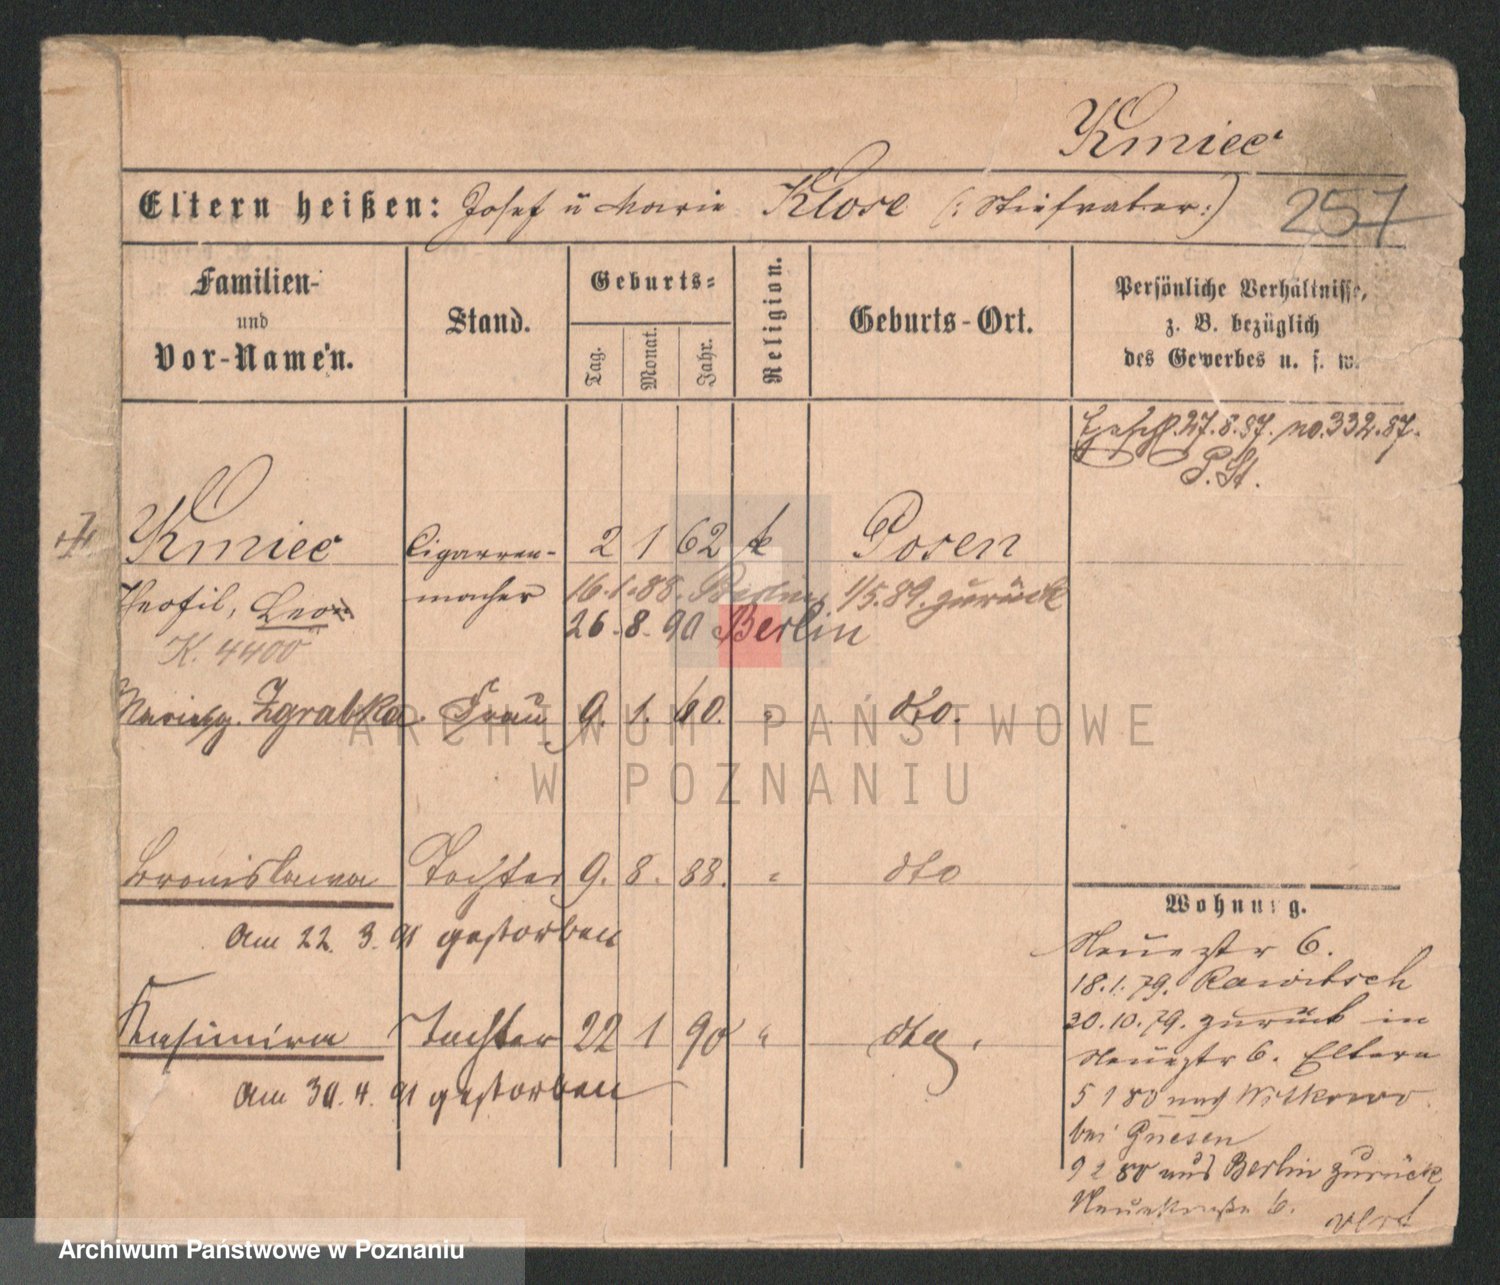 Kmiec
Eltern heißen: Josef u Marie Klose (: Stiefvater :) 257
Familien-
und
Vor-Namen.
Stand.
Geburts-
Tag.
Monat.
Jahr.
Religion.
Geburts-Ort.
Persönliche Verhältnisse,
z. B. bezüglich
des Gewerbes u. s. w.
27.8.87. no. 332.87.
P. St.
Kmiec Cigarren- 2 1 62 k Posen
Theofil, Leon macher 16.1.88. Berlin, 1/5.89. zurück
26.8.90 Berlin
K. 4400
Zgrabka Frau 9. 1. 60. " dto.
Bronislawa Tochter 9. 8. 88. " dto
Am 22. 3. 91 gestorben
Kasimira Tochter 22 1 90 " dto.
Am 30. 4. 91 gestorben
Wohnung.
Neuestr 6.
18.1.79. Rawitsch
30.10.79. zurück in
Neuestr 6. Eltern
5 1 80 nach Witkowo
bei Gnesen
9 2 80 aus Berlin zurück
Neuestraße 6.
ARCHIWUM PAŃSTWOWE
W POZNANIU
Archiwum Państwowe w Poznaniu